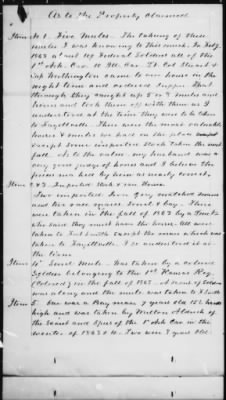 As to the Property claimed
Item No 1. Five Mules. The taking of these
mules I was knowing to this much. In July
1863 a lot of Federal Soldiers all of the
1st Ark. Cav. Lt Col Stuart &
Capt Worthington came to our house in the
night time and ordered supper. That
through they caught up 5 or 7 mules and
horses and took them off with them as I
understood at the time they was to be taken
to Fayetteville. There were the most valuable
horses & mules we had on the place
except some imported stock taken the next
fall. As to the value, my husband was a
very good judge of horses and I believe the
from me had by him as nearly correct.
Item 2 & 3. Imported
Two imported Iron grey matched mares
and two race mares Sorrel & bay. These
were taken in the fall of 1863 by a
who said they must have the horses. All were
taken to Fort Smith except the mares which was
taken to Fayetteville. I so understood it at
the time.
Item 4th Sorrel Mule. Was taken by a colored
Soldier belonging to the 1st Kansas Reg.
(Colored) in the fall of 1863. A of Soldiers
was along and the mule was taken to Ft Smith
Item 5. One was a Bay mare 7 year old 15½ hands
high and was taken by Milton Aldrich of
the Scouts and Spies of the 1st Ark Cav in the
winter of 1863 & 4. Two were 3 year old